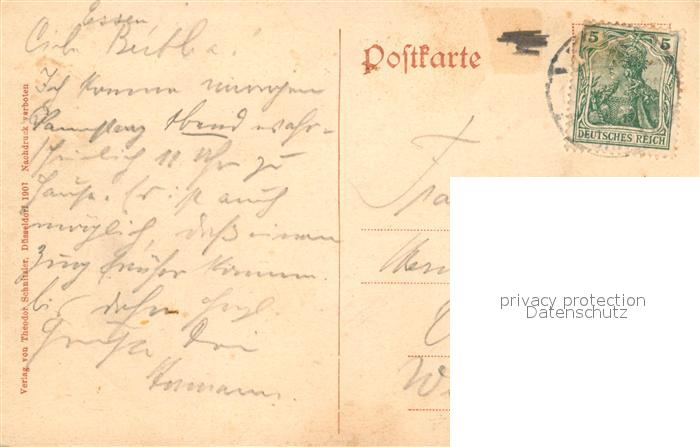 Essen,
Postkarte
5 5
DEUTSCHES REICH
Ich komme morgen
Samstag Abend wahr-
scheinlich 11 Uhr zu
Hause. Es ist auch
möglich, daß einen
Zug früher komme.
bis dahin herzl.
Grüße Dein
Hermann.
Verlag von Theodor Schnitzler, Düsseldorf 1907 Nachdruck verboten
privacy protection
Datenschutz